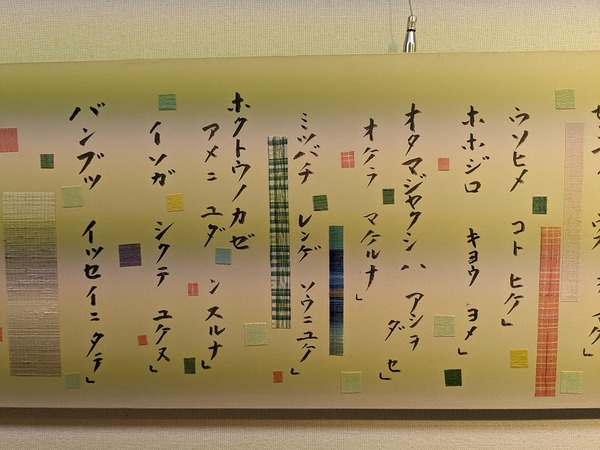 ウソヒメ コト ヒケ」
ホホジロ キヨウ ヨメ」
オタマジャクシ ハ アシヲ ダセ」
オケラ マケルナ」
ミツバチ レンゲ ソウニユケ」
ホクトウノカゼ
アメニ ユダ ン スルナ」
イソガ シクテ ユケヌ」
バンブツ イツセイニ タテ」